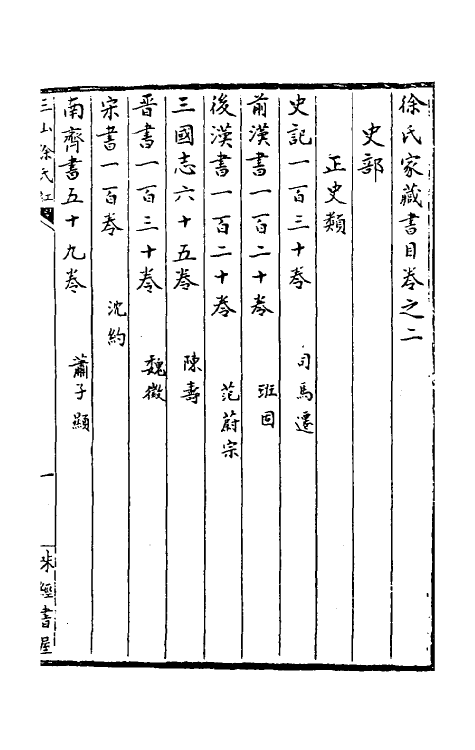 徐氏家藏書目卷之二
史部
正史類
史記一百三十卷 司馬遷
前漢書一百二十卷 班固
後漢書一百二十卷 范蔚宗
三國志六十五卷 陳壽
晉書一百三十卷 魏徵
宋書一百卷 沈約
南齊書五十九卷 蕭子顯
三山徐氏紅
一
味經書屋